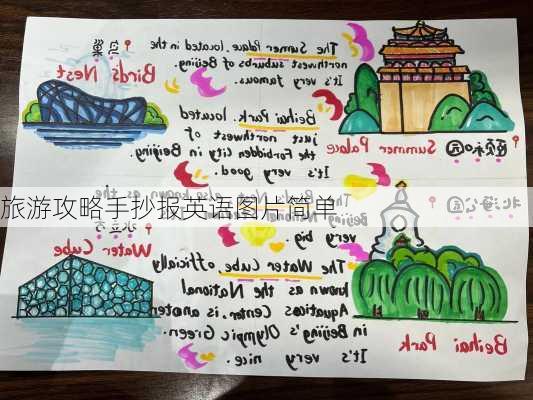 鸟巢
Bird's Nest
The Summer Palace, located in the
northwest suburbs of Beijing.
It's very famous.
颐和园
Summer Palace
Beihai Park, located
just northwest of
the Forbidden City in Beijing.
It's very good.
also known as the
旅游攻略手抄报英语图片简单
Beijing National
very big.
北海公园
水立方
Water Cube
The Water Cube officially
known as the National
Aquatics Center, is another
in Beijing's Olympic Green.
It's very nice.
Beihai Park